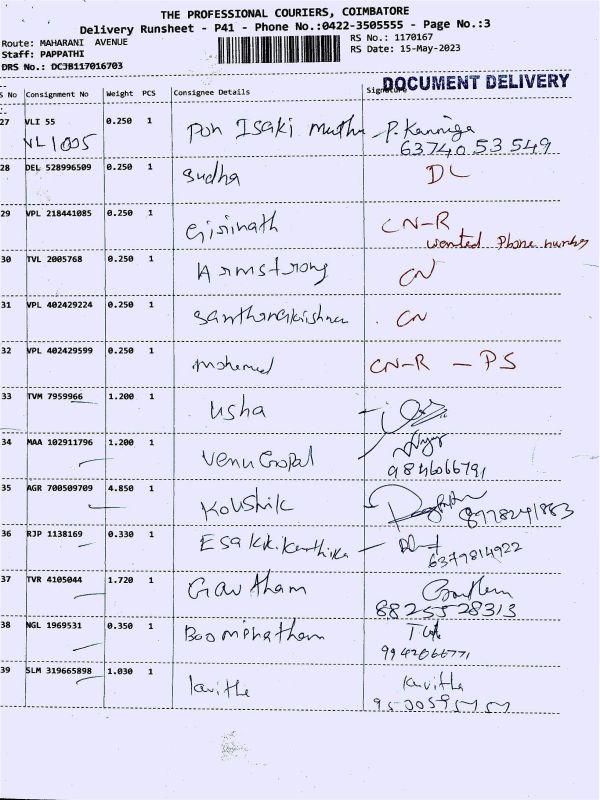 THE PROFESSIONAL COURIERS, COIMBATORE
Delivery Runsheet - P41 - Phone No.:0422-3505555 - Page No.:3
Route: MAHARANI AVENUE RS No.: 1170167
Staff: PAPPATHI RS Date: 15-May-2023
DRS No.: DCJB117016703
DOCUMENT DELIVERY
S No Consignment No Weight PCS Consignee Details Signature
27 VLI 55 0.250 1 Pon Isaki Muthu P. Kanniga
VL 1005 63740 53 549
28 DEL 528996509 0.250 1 Sudha DL
29 VPL 218441085 0.250 1 Girinath CN-R
wanted Phone number
30 TVL 2005768 0.250 1 Armstrong CN
31 VPL 402429224 0.250 1 Santhanakrishnan CN
32 VPL 402429599 0.250 1 Mohamed CN-R - PS
33 TVM 7959966 1.200 1 Usha
34 MAA 102911796 1.200 1 Venu Gopal
9846066791
35 AGR 700509709 4.850 1 Koushik 8978241883
36 RJP 1138169 0.330 1 Esakki.Karthika
6379814922
37 TVR 4105044 1.720 1 Gautham Gautham
8825528313
38 NGL 1969531 0.350 1 Boominathan
9942066771
39 SLM 319665898 1.030 1 Kavitha Kavitha